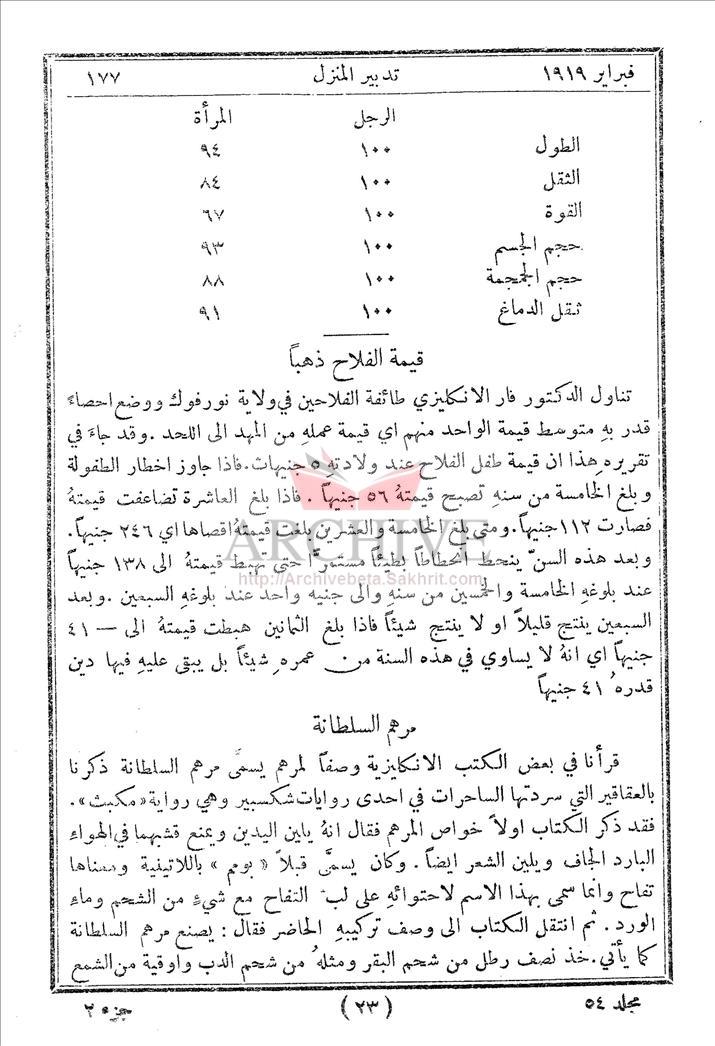 فبراير ١٩١٩ تدبير المنزل ١٧٧
الرجل المرأة
الطول ١٠٠ ٩٤
الثقل ١٠٠ ٨٤
القوة ١٠٠ ٦٧
حجم الجسم ١٠٠ ٩٣
حجم الجمجمة ١٠٠ ٨٨
ثقل الدماغ ١٠٠ ٩١
قيمة الفلاح ذهباً
تناول الدكتور فار الانكليزي طائفة الفلاحين في ولاية نورفوك ووضع احصاءً
قدر بهِ متوسط قيمة الواحد منهم اي قيمة عملهِ من المهد الى اللحد . وقد جاءَ في
تقريره هذا ان قيمة طفل الفلاح عند ولادتهِ ٥ جنيهات . فاذا جاوز اخطار الطفولة
وبلغ الخامسة من سنهِ تصبح قيمتهُ ٥٦ جنيهاً . فاذا بلغ العاشرة تضاعفت قيمتهُ
فصارت ١١٢ جنيهاً . ومتى بلغ الخامسة والعشرين بلغت قيمتهُ اقصاها اي ٢٤٦ جنيهاً .
وبعد هذه السنّ ينحط انحطاطاً بطيئاً مستمرًّا حتى تهبط قيمتهُ الى ١٣٨ جنيهاً
عند بلوغهِ الخامسة والخمسين من سنهِ والى جنيه واحد عند بلوغهِ السبعين . وبعد
السبعين ينتج قليلاً او لا ينتج شيئاً فاذا بلغ الثمانين هبطت قيمتهُ الى — ٤١
جنيهاً اي انهُ لا يساوي في هذه السنة من عمرهِ شيئاً بل يبقى عليهِ فيها دين
قدرهُ ٤١ جنيهاً
مرهم السلطانة
قرأنا في بعض الكتب الانكليزية وصفاً لمرهم يسمَّى مرهم السلطانة ذكرنا
بالعقاقير التي سردتها الساحرات في احدى روايات شكسبير وهي رواية «مكبث» .
فقد ذكر الكتاب اولاً خواص المرهم فقال انهُ يلين اليدين ويمنع قشبهما في الهواء
البارد الجاف ويلين الشعر ايضاً . وكان يسمَّى قبلاً « بومم » باللاتينية ومعناها
تفاح وانما سمى بهذا الاسم لاحتوائهِ على لب التفاح مع شيءٍ من الشحم وماءِ
الورد . ثم انتقل الكتاب الى وصف تركيبهِ الحاضر فقال : يصنع مرهم السلطانة
كما يأتي . خذ نصف رطل من شحم البقر ومثلهُ من شحم الدب واوقية من الشمع
مجلد ٥٤ (٢٣) جزء ٢
ARCHIVE
http://Archivebeta.Sakhrit.com